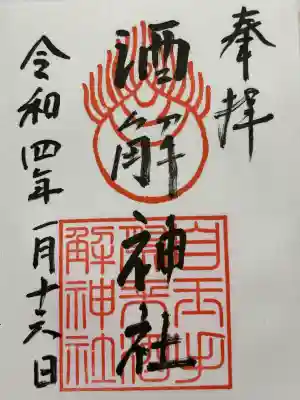 奉拝
酒解神社
自玉手
祭来酒
解神社
令和四年一月十六日